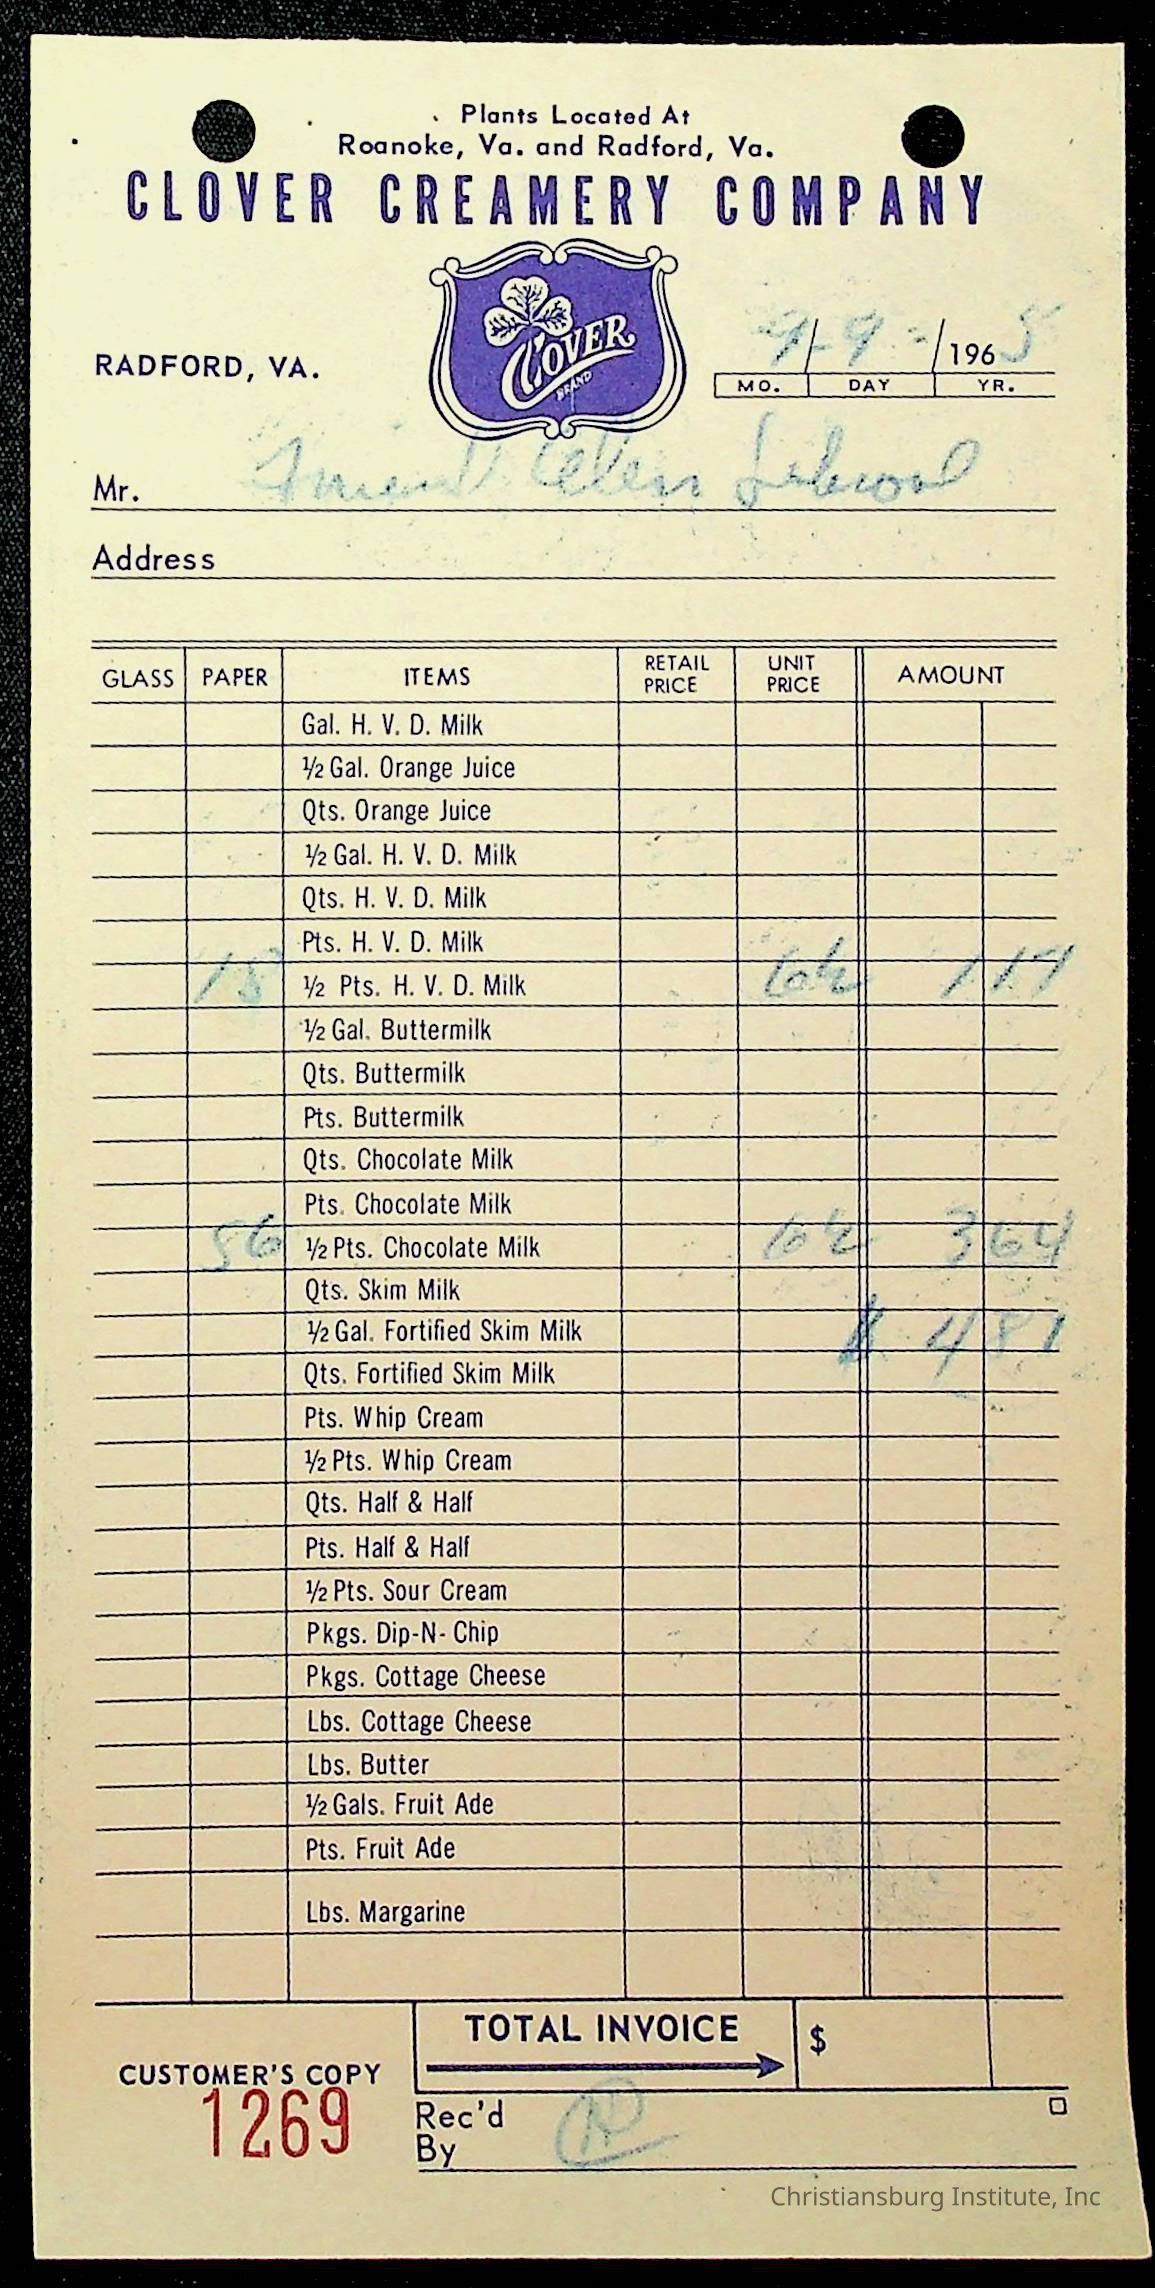 Plants Located At
Roanoke, Va. and Radford, Va.
CLOVER CREAMERY COMPANY
CLOVER
BRAND
RADFORD, VA.
9-9-/1965
MO. DAY YR.
Mr. Friend Ellen School
Address
GLASS PAPER ITEMS RETAIL PRICE UNIT PRICE AMOUNT
Gal. H. V. D. Milk
½ Gal. Orange Juice
Qts. Orange Juice
½ Gal. H. V. D. Milk
Qts. H. V. D. Milk
Pts. H. V. D. Milk
18 ½ Pts. H. V. D. Milk 6½ 1 17
½ Gal. Buttermilk
Qts. Buttermilk
Pts. Buttermilk
Qts. Chocolate Milk
Pts. Chocolate Milk
56 ½ Pts. Chocolate Milk 6½ 3 64
Qts. Skim Milk
½ Gal. Fortified Skim Milk $ 4 81
Qts. Fortified Skim Milk
Pts. Whip Cream
½ Pts. Whip Cream
Qts. Half & Half
Pts. Half & Half
½ Pts. Sour Cream
Pkgs. Dip-N-Chip
Pkgs. Cottage Cheese
Lbs. Cottage Cheese
Lbs. Butter
½ Gals. Fruit Ade
Pts. Fruit Ade
Lbs. Margarine
TOTAL INVOICE $
CUSTOMER'S COPY
1269
Rec'd
By
Christiansburg Institute, Inc